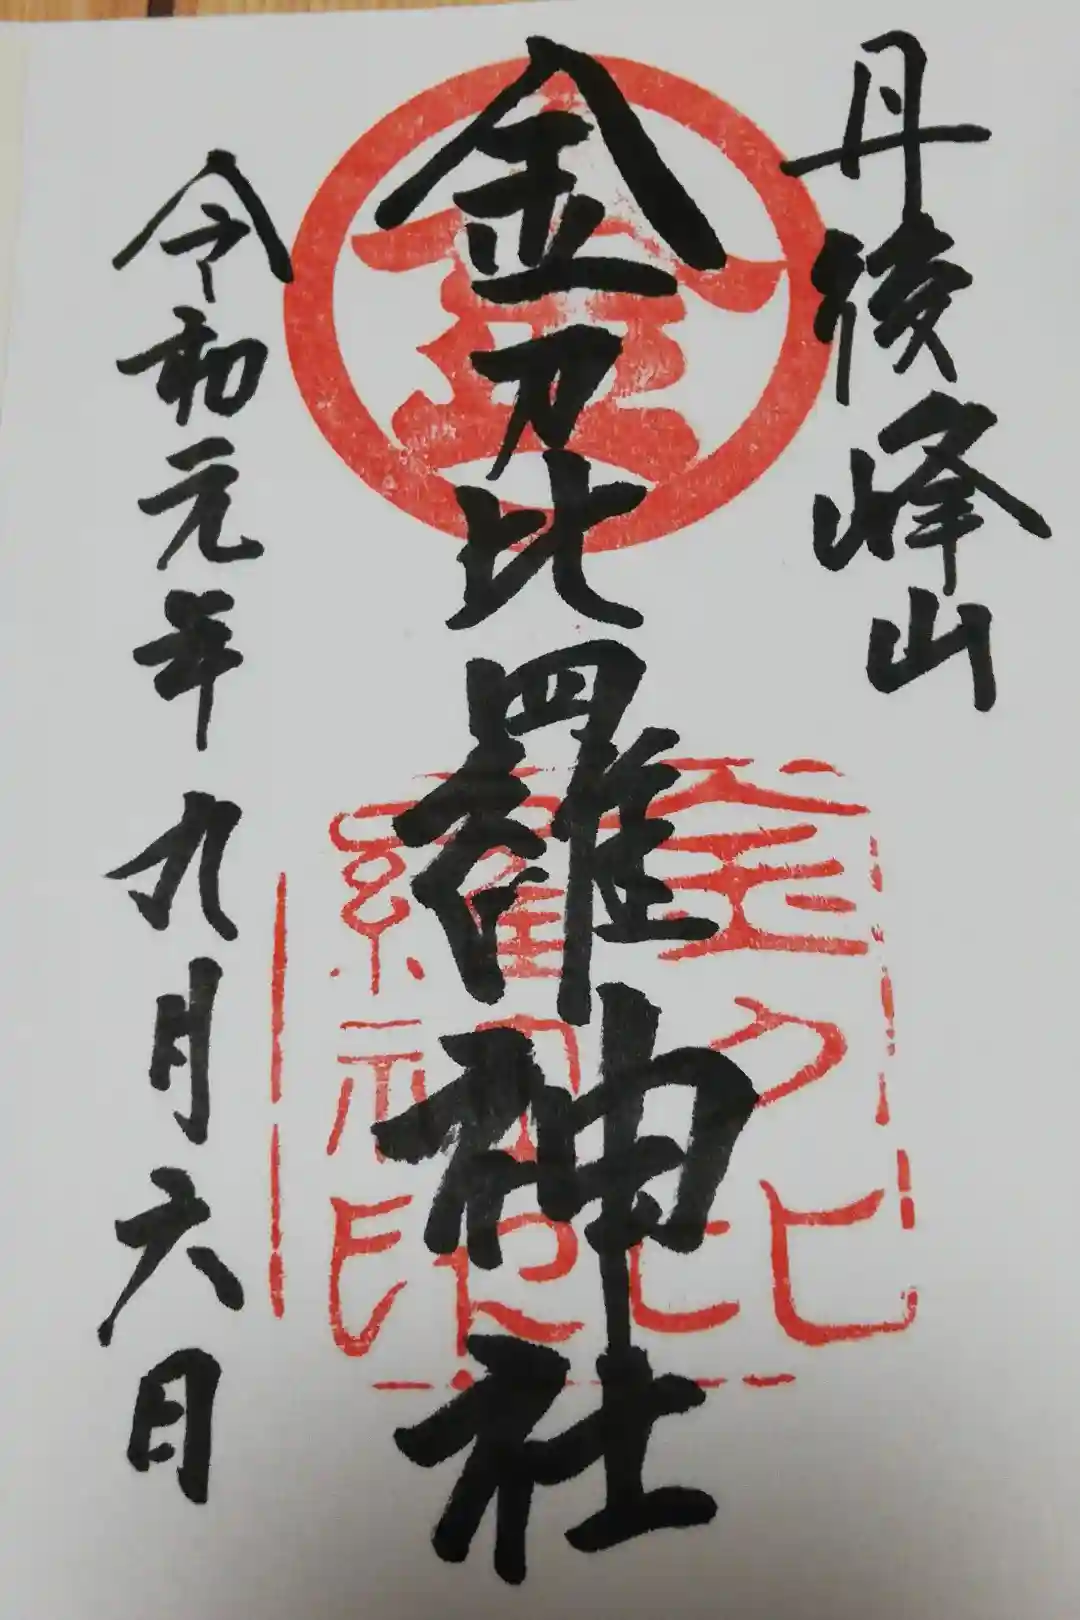 丹後峰山
金刀比羅神社
令和元年九月六日
金
金刀比羅神社